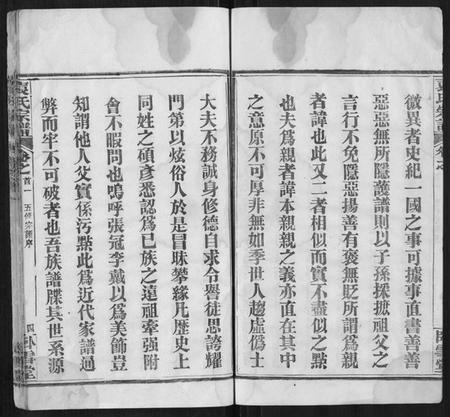 袁氏宗譜
卷之
臥雪堂
微異者史紀一國之事可據事直書善善
惡惡無所隱護譜則以子孫採摭祖父之
言行不免隱惡揚善有褒無貶所謂為親
者諱也此又二者相似而實不盡似之點
也夫為親者諱本親親之義亦直在其中
之意原不可厚非無如季世人趨虛僞士
大夫不務誠身修德自求令譽徒思誇耀
門第以炫俗人於是冒昧攀緣凡歷史上
同姓之碩彥悉認為已族之遠祖牽强附
會不暇問也嗚呼張冠李戴以為美飾豈
知謂他人父實係污點此為近代家譜通
弊而牢不可破者也吾族譜牒其世系源
袁氏宗譜
卷之首一
五修宗譜序
四
臥雪堂